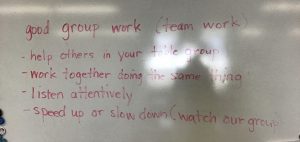 good group work (team work)
- help others in your table group
- work together doing the same thing
- listen attentively
- speed up or slow down (watch our group